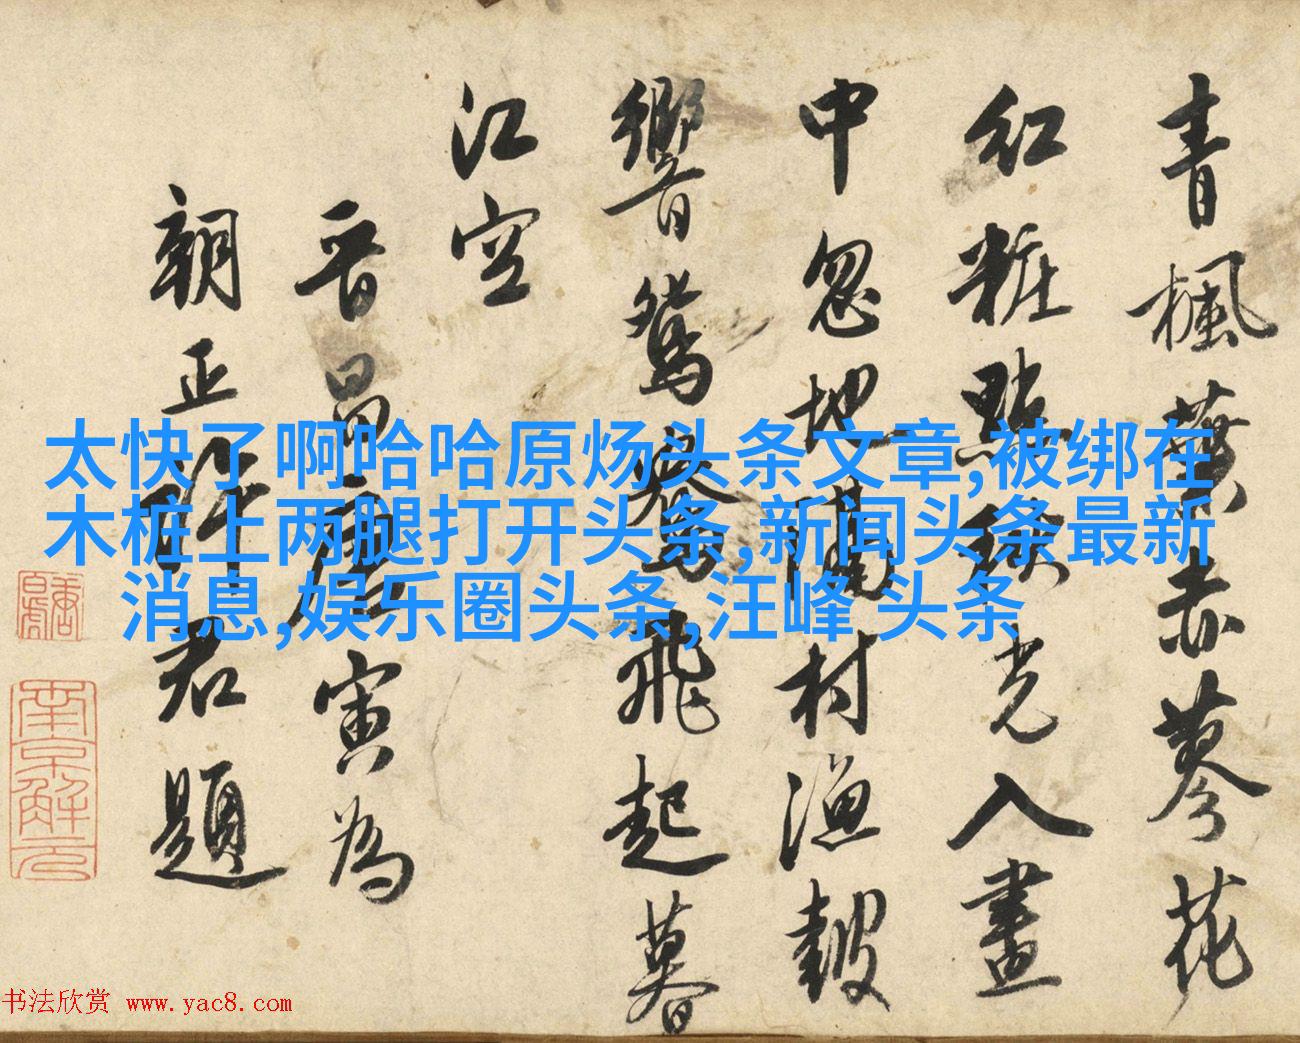 青楓葉赤蓼花
紅粧點秋光入畫
中忽地隔村漁皷
響鴛鴦飛起暮
江空
晉昌唐寅為
朝正君題
南京解元
太快了啊哈哈原炀头条文章,被绑在
木桩上两腿打开头条,新闻头条最新
消息,娱乐圈头条,汪峰 头条
书法欣赏 www.yac8.com